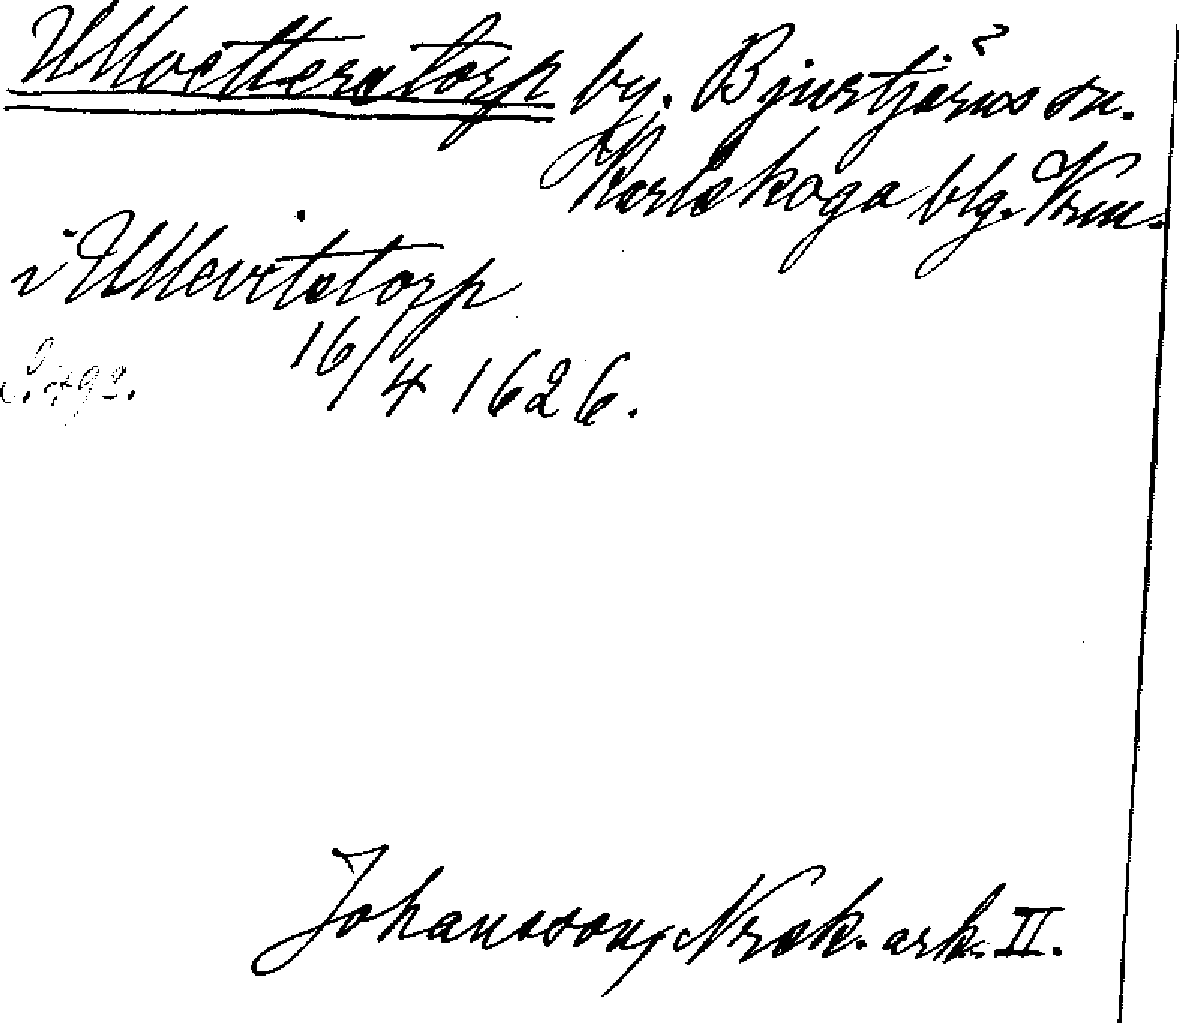 Ullvetterstorp by. Bjurtjärns sn.
Karlskoga blg. Vrm.
i Ullevitstorp
16/4 1626.
Johansson, Nrsk. ark. II.